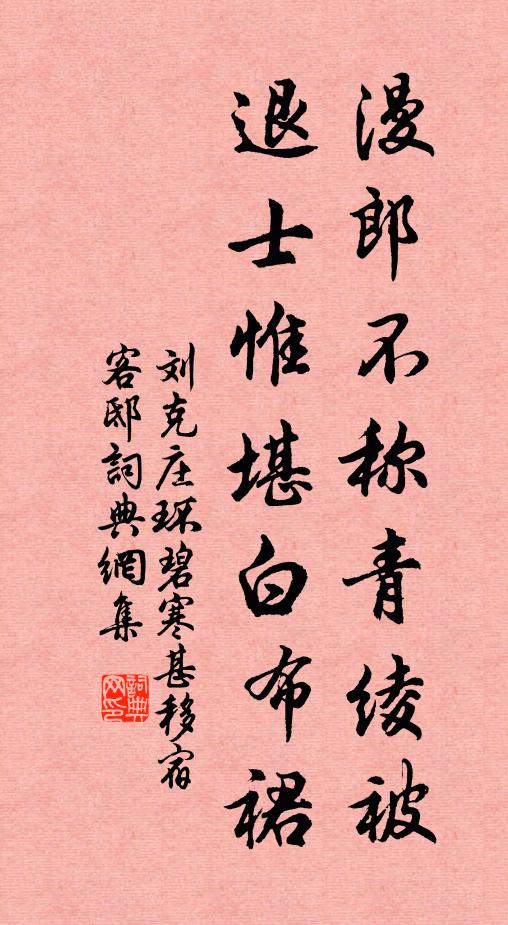 漫郎不称青绫被
退士惟堪白布裙
刘克庄环碧寒甚移宿
客邸詞典網集
詞典
网印